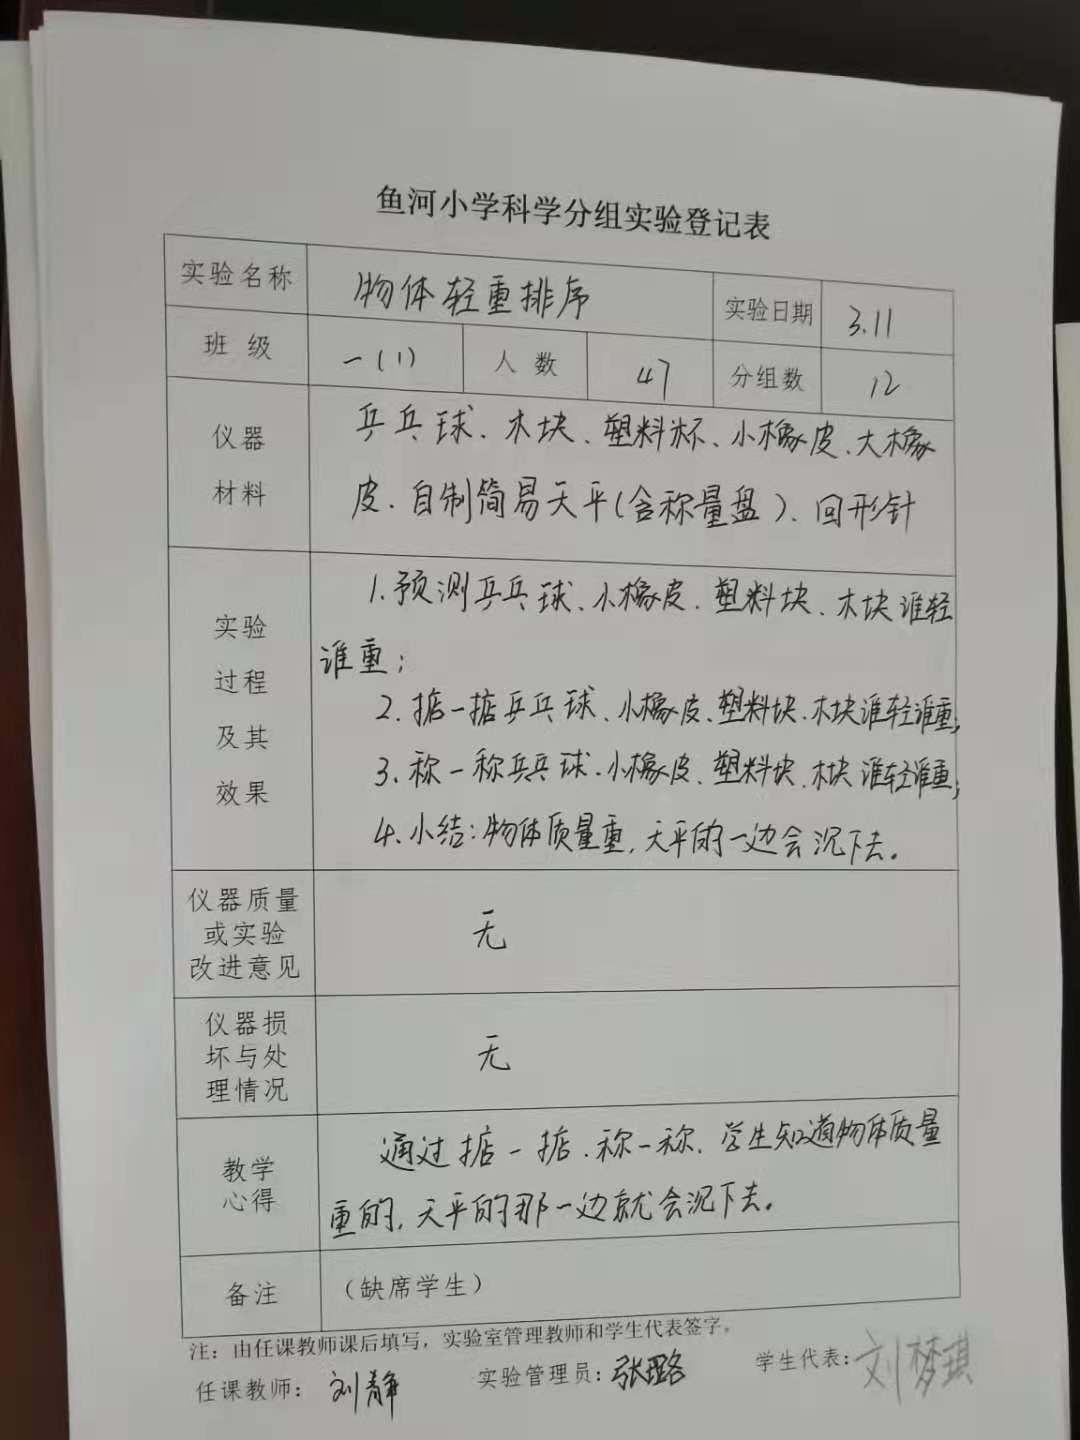 鱼河小学科学分组实验登记表
实验名称 物体轻重排序 实验日期 3.11
班级 一(1) 人数 47 分组数 12
仪器材料
乒乓球、木块、塑料杯、小橡皮、大橡
皮、自制简易天平(含称量盘)、回形针
实验
过程
及其
效果
1.预测乒乓球、小橡皮、塑料块、木块谁轻
谁重;
2.掂一掂乒乓球、小橡皮、塑料块、木块谁轻谁重;
3.称一称乒乓球、小橡皮、塑料块、木块谁轻谁重;
4.小结:物体质量重,天平的一边会沉下去。
仪器质量
或实验
改进意见
无
仪器损
坏与处
理情况
无
教学
心得
通过掂一掂、称一称,学生知道物体质量
重的,天平的那一边就会沉下去。
备注 (缺席学生)
注:由任课教师课后填写,实验室管理教师和学生代表签字。
任课教师: 刘静 实验管理员: 张璐 学生代表: 刘梦琪